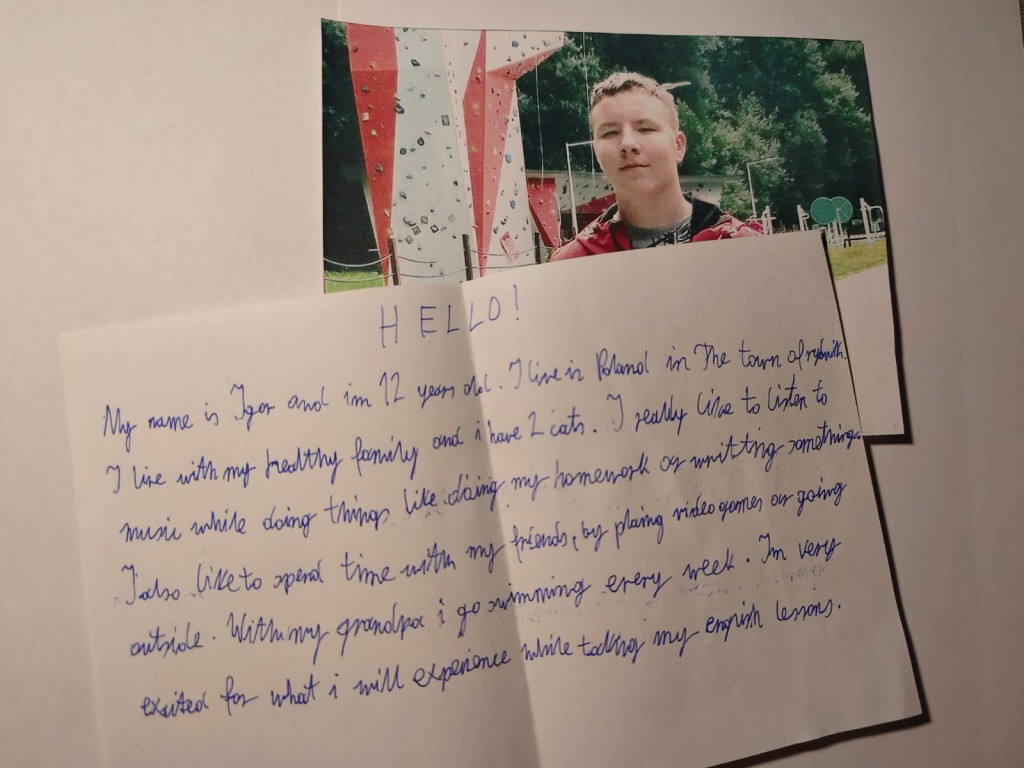 HELLO!
My name is Igor and im 12 years old. I live in Poland in The town of rybnik.
I live with my healthy family and i have 2 cats. I really like to listen to
music while doing things like doing my homework or writting something.
I also like to spend time with my friends, by plaing videogames or going
outside. With my grandpa i go swimming every week. Im very
exited for what i will experience while taking my english lessons.